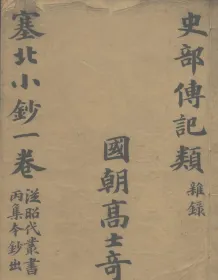 史部傳記類 雜錄
國朝高士奇
塞北小鈔一卷
從昭代叢書
丙集本鈔出